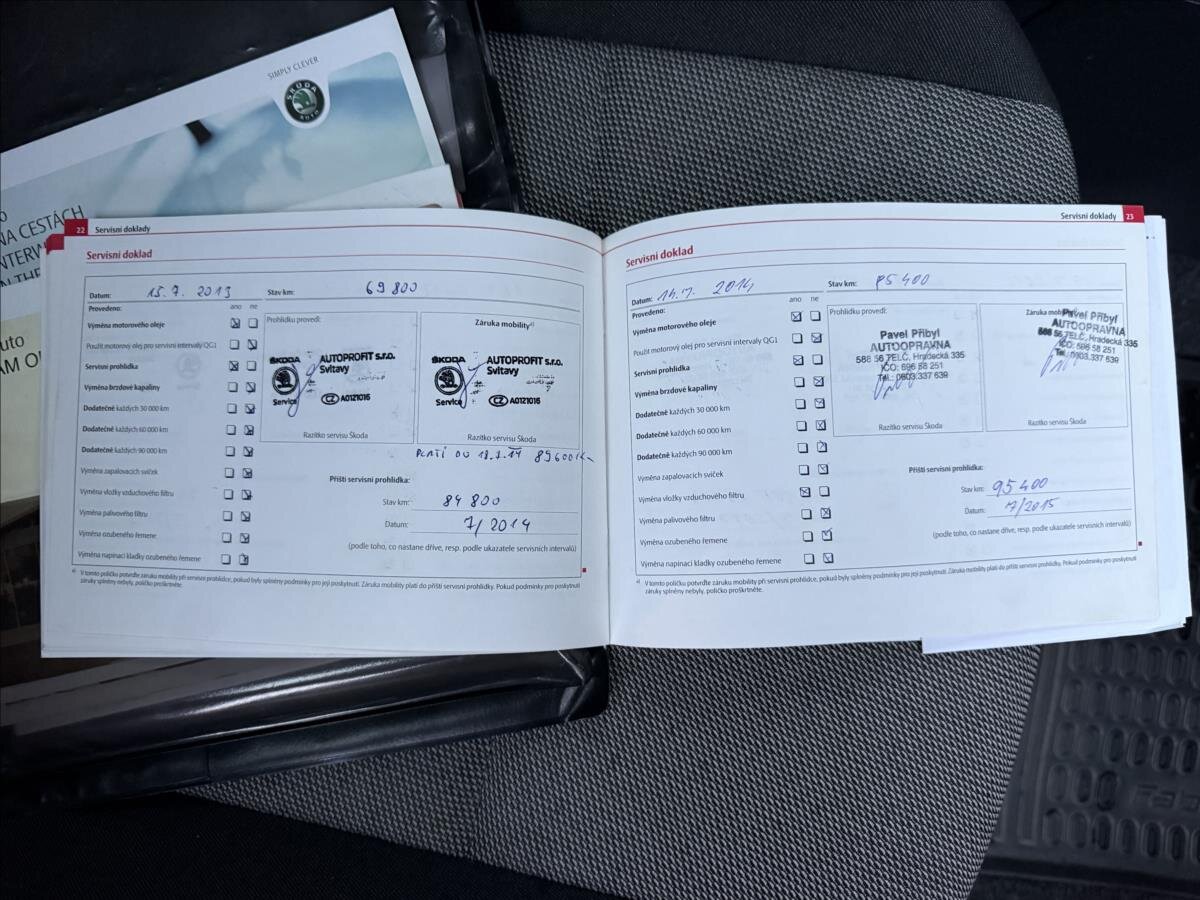 SIMPLY CLEVER
ŠKODA
AUTO
NA CESTÁCH
INTERW
N THE
uto
AM O
22 Servisní doklady
Servisní doklad
Datum: 15.7. 2013 Stav km: 69 800
Provedeno: ano ne
Výměna motorového oleje
Použit motorový olej pro servisní intervaly QG1
Servisní prohlídka
Výměna brzdové kapaliny
Dodatečně každých 30 000 km
Dodatečně každých 60 000 km
Dodatečně každých 90 000 km
Výměna zapalovacích svíček
Výměna vložky vzduchového filtru
Výměna palivového filtru
Výměna ozubeného řemene
Výměna napínací kladky ozubeného řemene
Prohlídku provedl:
ŠKODA
Service
AUTOPROFIT s.r.o.
Svitavy
CZ A0121016
Razítko servisu Škoda
Záruka mobility a)
ŠKODA
Service
AUTOPROFIT s.r.o.
Svitavy
CZ A0121016
Razítko servisu Škoda
PLATÍ DO 18.7.14 89.600
Příští servisní prohlídka:
Stav km: 84 800
Datum: 7/2014
(podle toho, co nastane dříve, resp. podle ukazatele servisních intervalů)
a) V tomto políčku potvrďte záruku mobility při servisní prohlídce, pokud byly splněny podmínky pro její poskytnutí. Záruka mobility platí do příští servisní prohlídky. Pokud podmínky pro poskytnutí
záruky splněny nebyly, políčko proškrtněte.
Servisní doklady 23
Servisní doklad
Datum: 14.7. 2014 Stav km: 85 400
Provedeno: ano ne
Výměna motorového oleje
Použit motorový olej pro servisní intervaly QG1
Servisní prohlídka
Výměna brzdové kapaliny
Dodatečně každých 30 000 km
Dodatečně každých 60 000 km
Dodatečně každých 90 000 km
Výměna zapalovacích svíček
Výměna vložky vzduchového filtru
Výměna palivového filtru
Výměna ozubeného řemene
Výměna napínací kladky ozubeného řemene
Prohlídku provedl:
Pavel Přibyl
AUTOOPRAVNA
588 56 TELČ, Hradecká 335
IČO: 696 58 251
Tel.: 0603.337 639
Razítko servisu Škoda
Pavel Přibyl
AUTOOPRAVNA
588 56 TELČ, Hradecká 335
IČO: 696 58 251
Tel.: 0603.337 639
Razítko servisu Škoda
Příští servisní prohlídka:
Stav km: 95 400
Datum: 7/2015
(podle toho, co nastane dříve, resp. podle ukazatele servisních intervalů)
a) V tomto políčku potvrďte záruku mobility při servisní prohlídce, pokud byly splněny podmínky pro její poskytnutí. Záruka mobility platí do příští servisní prohlídky. Pokud podmínky pro poskytnutí
záruky splněny nebyly, políčko proškrtněte.
Fab